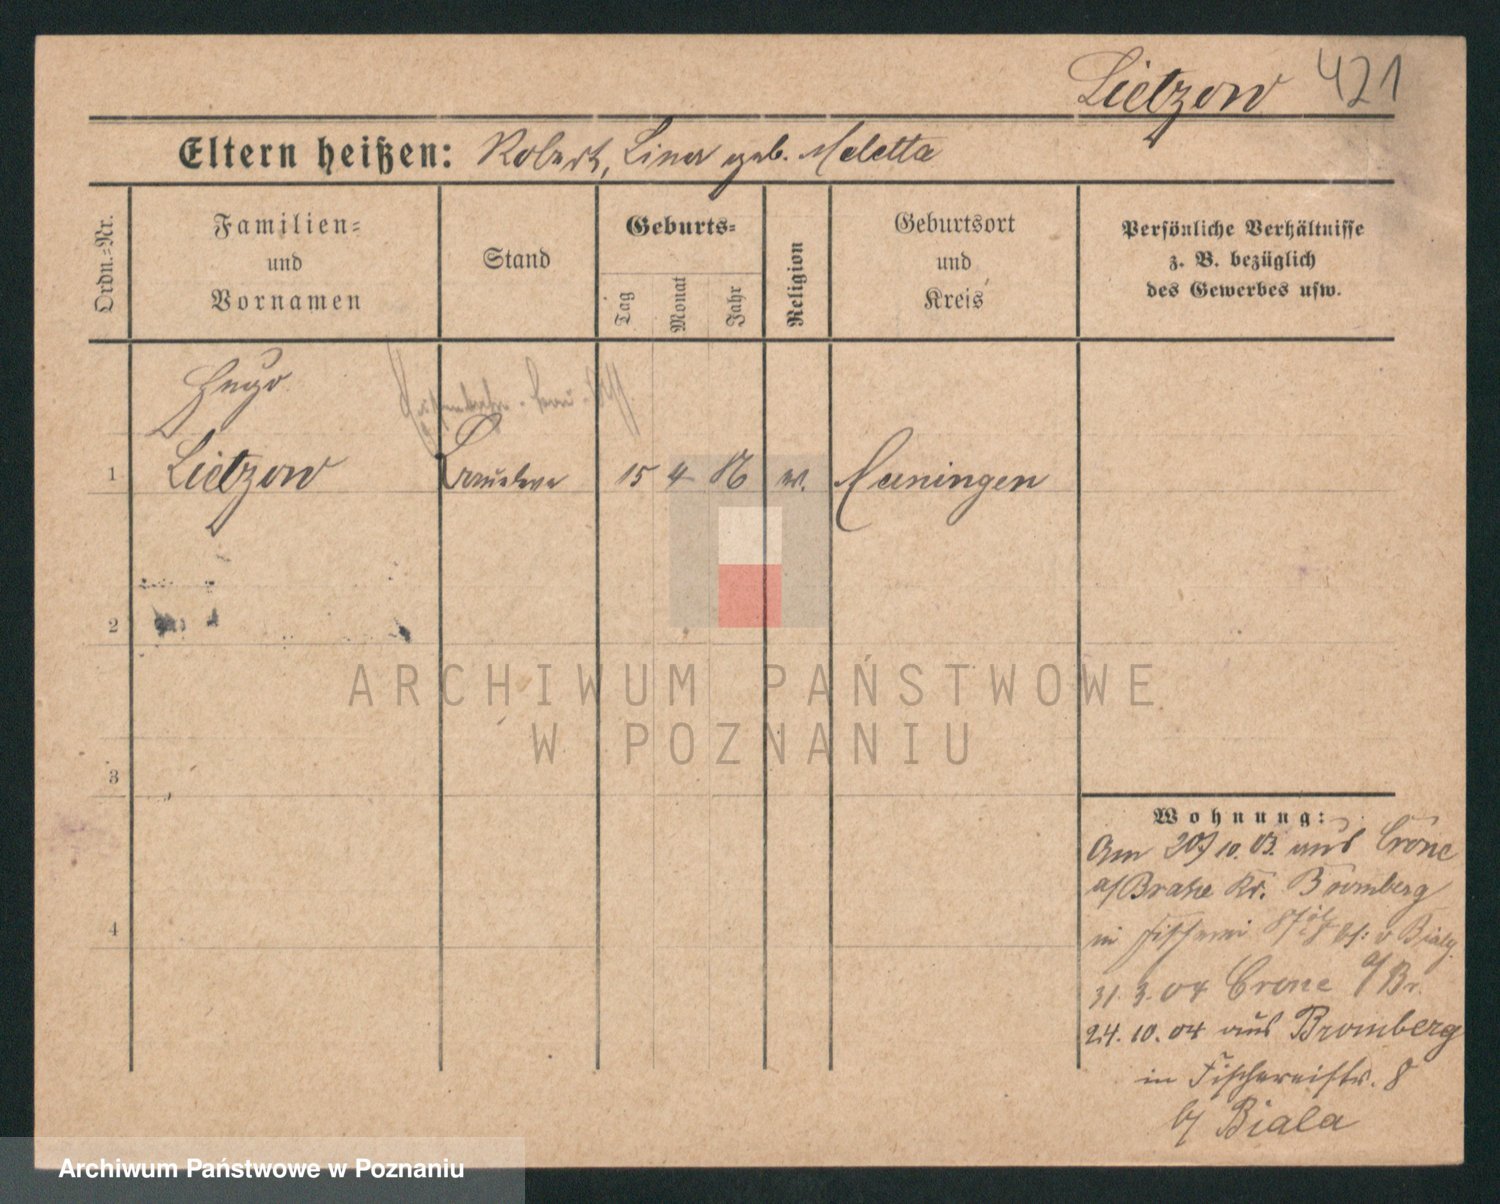 Lietzow 421
Eltern heißen: Robert, Lina geb. Meletta
Ordn.=Nr.
Familien=
und
Vornamen
Stand
Geburts=
Tag
Monat
Jahr
Religion
Geburtsort
und
Kreis
Persönliche Verhältnisse
z. B. bezüglich
des Gewerbes usw.
Hugo
1 Lietzow 15 4 86 Meiningen
2
3
4
ARCHIWUM PAŃSTWOWE
W POZNANIU
Wohnung:
Am 20/10. 03. aus Crone
a/Brahe Kr. Bromberg
in Fischerei 8 b/: v Bialy.
31. 3. 04 Crone a/Br.
24. 10. 04 aus Bromberg
in Fischereistr. 8
b/ Biala
Archiwum Państwowe w Poznaniu